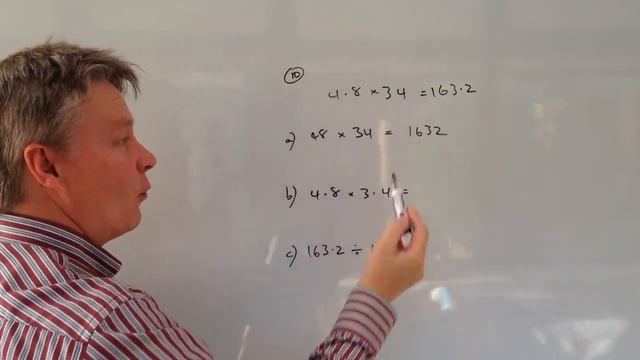 10
4.8 × 34 = 163.2
a) 48 × 34 = 1632
b) 4.8 × 3.4 =
c) 163.2 ÷